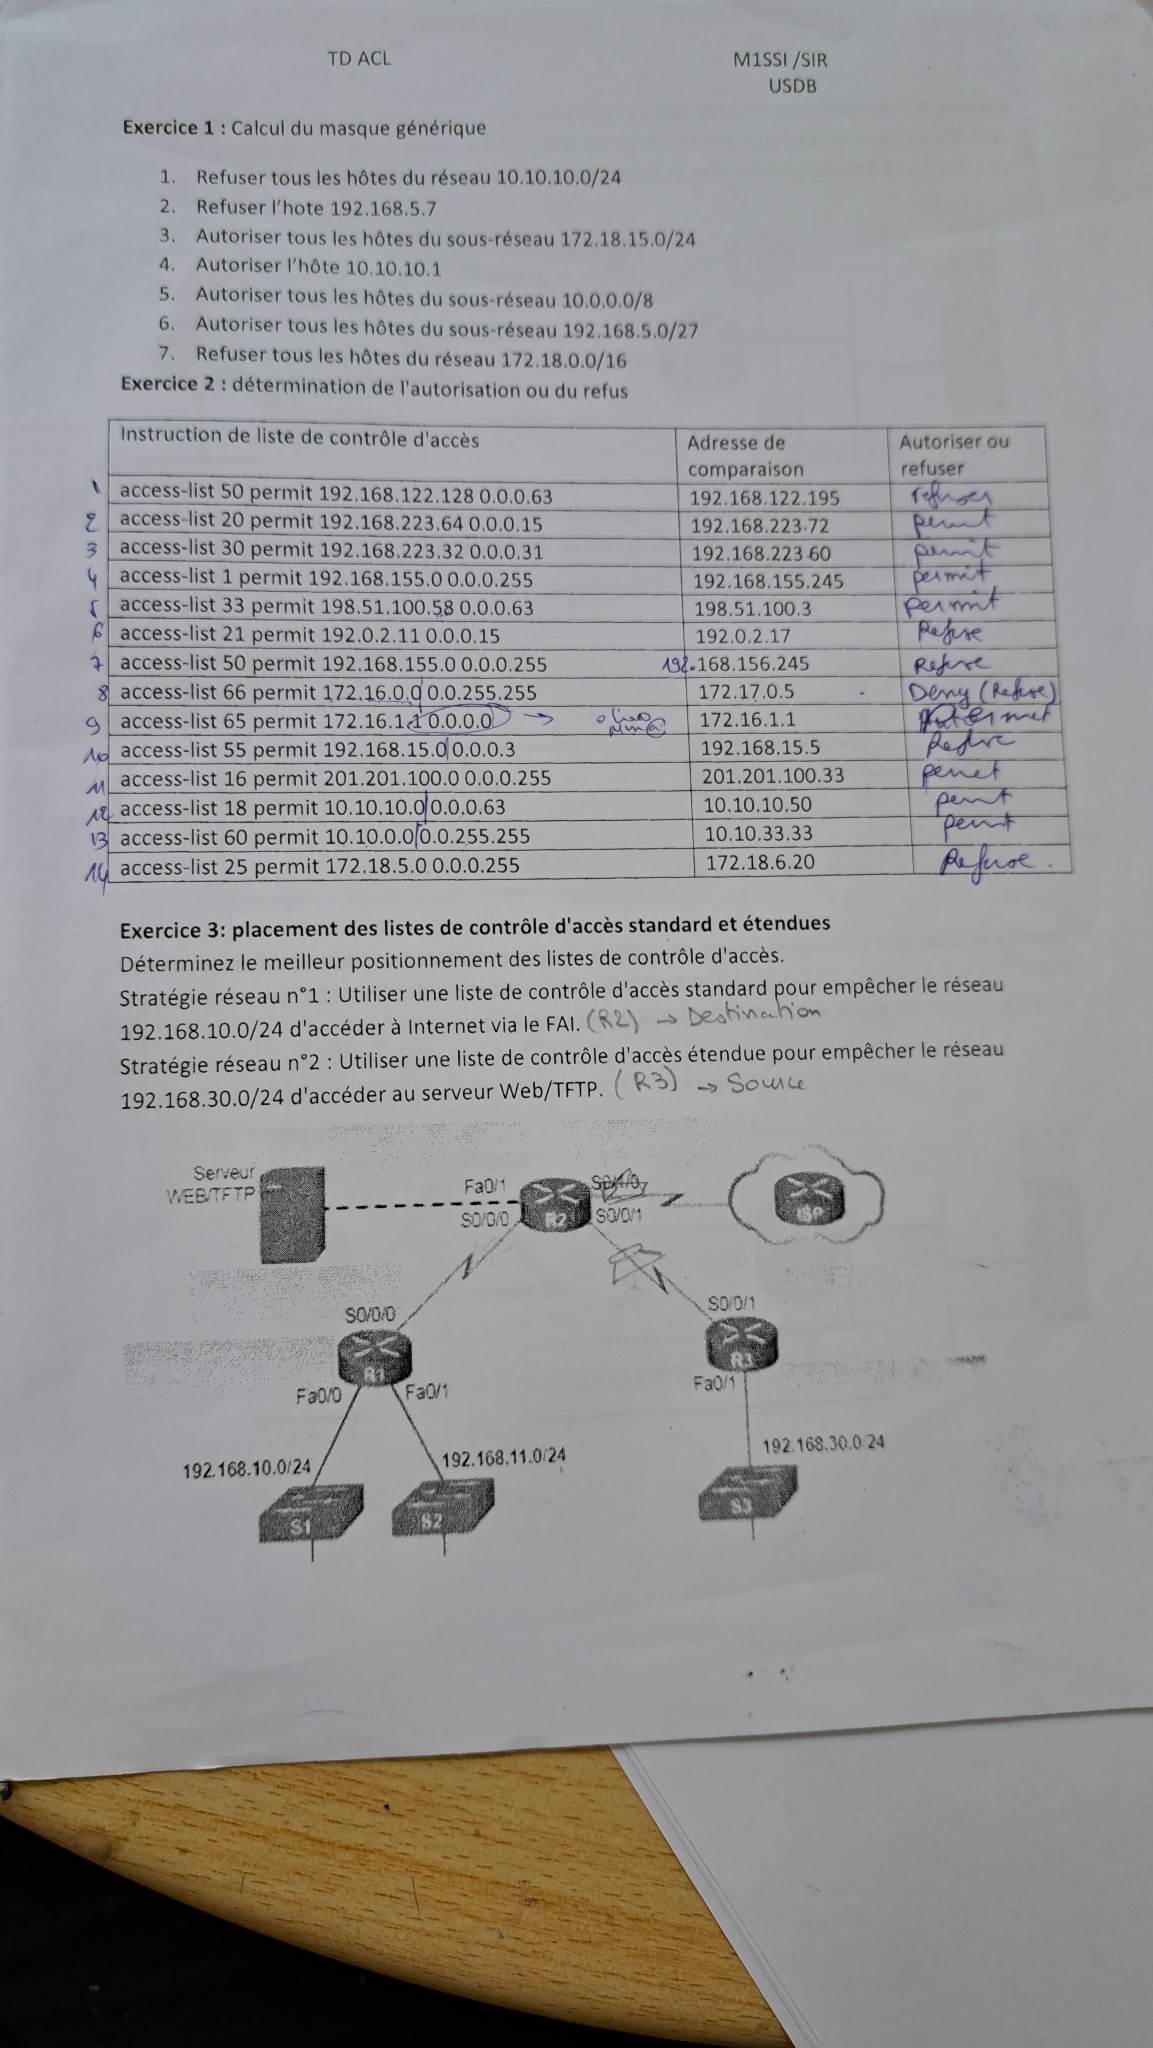 TD ACL M1SSI /SIR
USDB
Exercice 1 : Calcul du masque générique
1. Refuser tous les hôtes du réseau 10.10.10.0/24
2. Refuser l'hote 192.168.5.7
3. Autoriser tous les hôtes du sous-réseau 172.18.15.0/24
4. Autoriser l'hôte 10.10.10.1
5. Autoriser tous les hôtes du sous-réseau 10.0.0.0/8
6. Autoriser tous les hôtes du sous-réseau 192.168.5.0/27
7. Refuser tous les hôtes du réseau 172.18.0.0/16
Exercice 2 : détermination de l'autorisation ou du refus
Instruction de liste de contrôle d'accès Adresse de comparaison Autoriser ou refuser
1 access-list 50 permit 192.168.122.128 0.0.0.63 192.168.122.195 refuser
2 access-list 20 permit 192.168.223.64 0.0.0.15 192.168.223.72 permit
3 access-list 30 permit 192.168.223.32 0.0.0.31 192.168.223.60 permit
4 access-list 1 permit 192.168.155.0 0.0.0.255 192.168.155.245 permit
5 access-list 33 permit 198.51.100.58 0.0.0.63 198.51.100.3 permit
6 access-list 21 permit 192.0.2.11 0.0.0.15 192.0.2.17 Refuse
7 access-list 50 permit 192.168.155.0 0.0.0.255 192.168.156.245 Refuse
8 access-list 66 permit 172.16.0.0 0.0.255.255 172.17.0.5 Deny (Refuse)
9 access-list 65 permit 172.16.1.1 0.0.0.0 → 172.16.1.1
10 access-list 55 permit 192.168.15.0 0.0.0.3 192.168.15.5 Refuse
11 access-list 16 permit 201.201.100.0 0.0.0.255 201.201.100.33 permet
12 access-list 18 permit 10.10.10.0 0.0.0.63 10.10.10.50 permit
13 access-list 60 permit 10.10.0.0 0.0.255.255 10.10.33.33 permit
14 access-list 25 permit 172.18.5.0 0.0.0.255 172.18.6.20 Refuse.
Exercice 3: placement des listes de contrôle d'accès standard et étendues
Déterminez le meilleur positionnement des listes de contrôle d'accès.
Stratégie réseau n°1 : Utiliser une liste de contrôle d'accès standard pour empêcher le réseau
192.168.10.0/24 d'accéder à Internet via le FAI. (R2) → Destination
Stratégie réseau n°2 : Utiliser une liste de contrôle d'accès étendue pour empêcher le réseau
192.168.30.0/24 d'accéder au serveur Web/TFTP. (R3) → Source
Serveur
WEB/TFTP
Fa0/1
S0/0/0 R2 S0/0/1
ISP
S0/0/0
S0/0/1
R1
R3
Fa0/0 Fa0/1
Fa0/1
192.168.10.0/24 192.168.11.0/24 192.168.30.0/24
S1 S2 S3